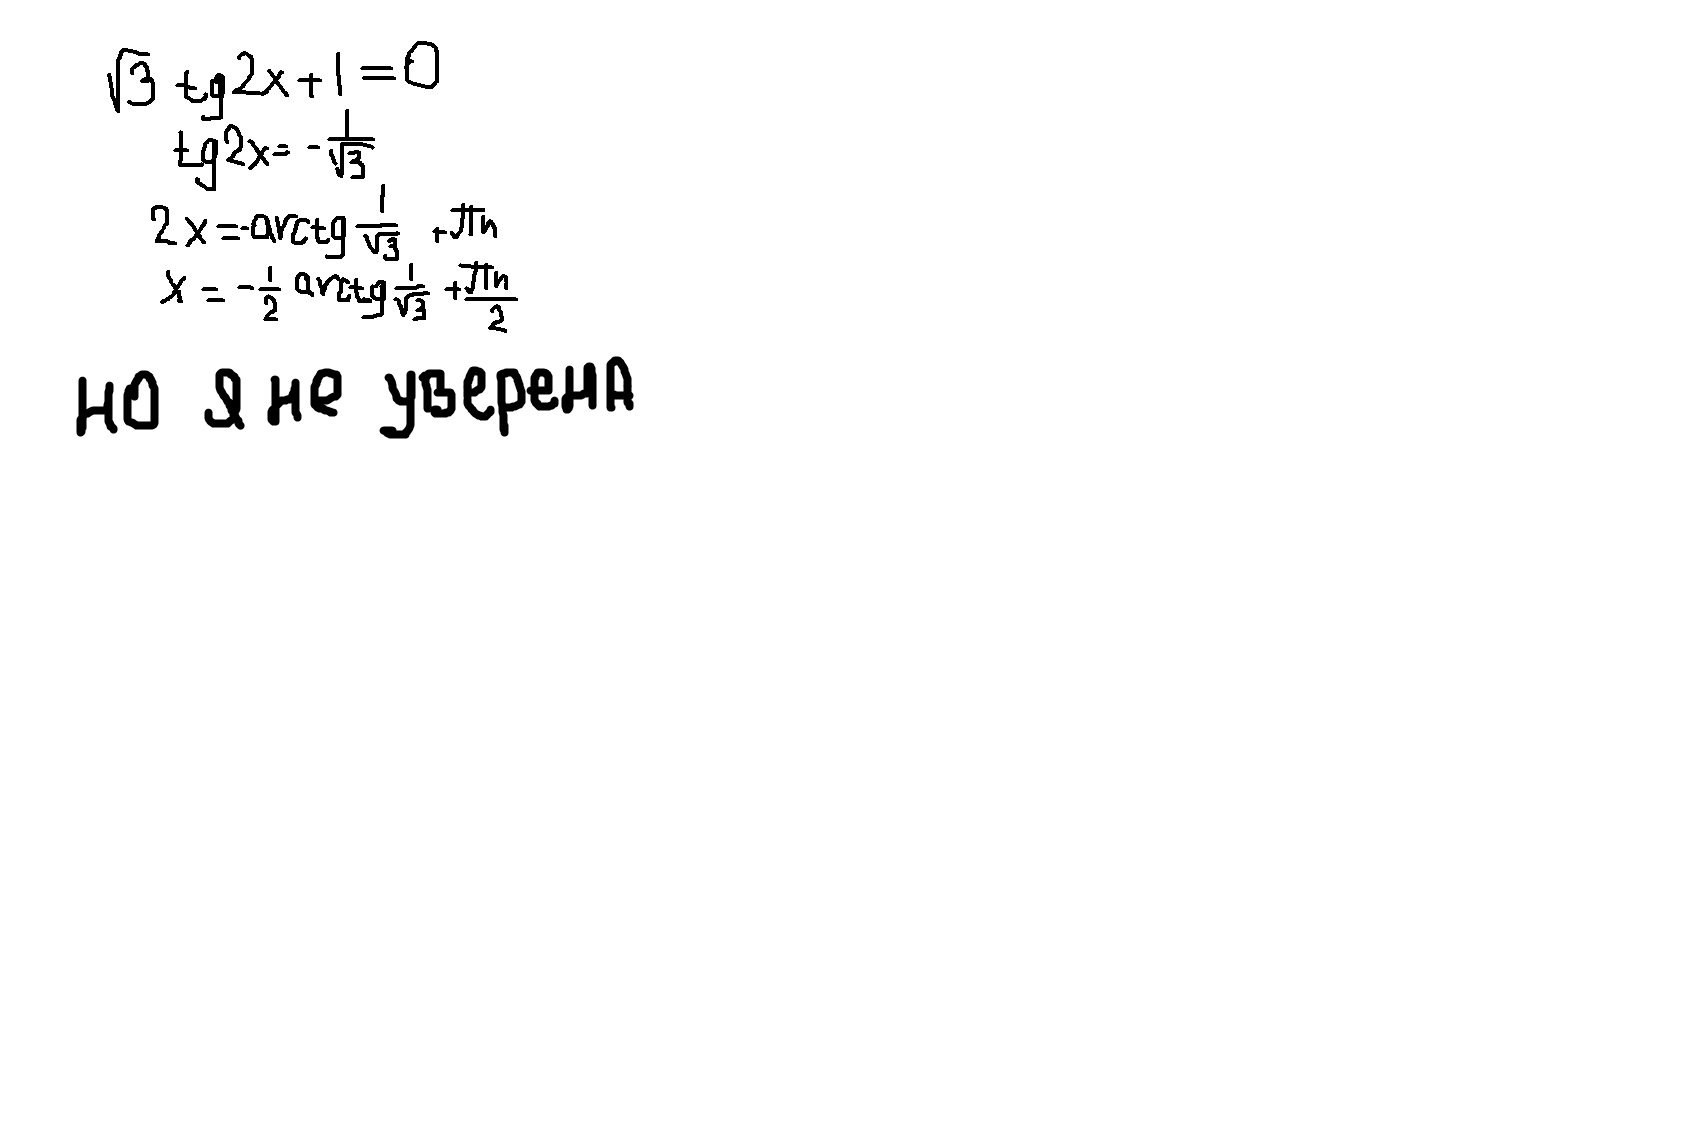 √3 tg2x+1=0
tg2x=-1/√3
2x=-arctg 1/√3 +πn
x=-1/2 arctg 1/√3 +πn/2
но я не уверена